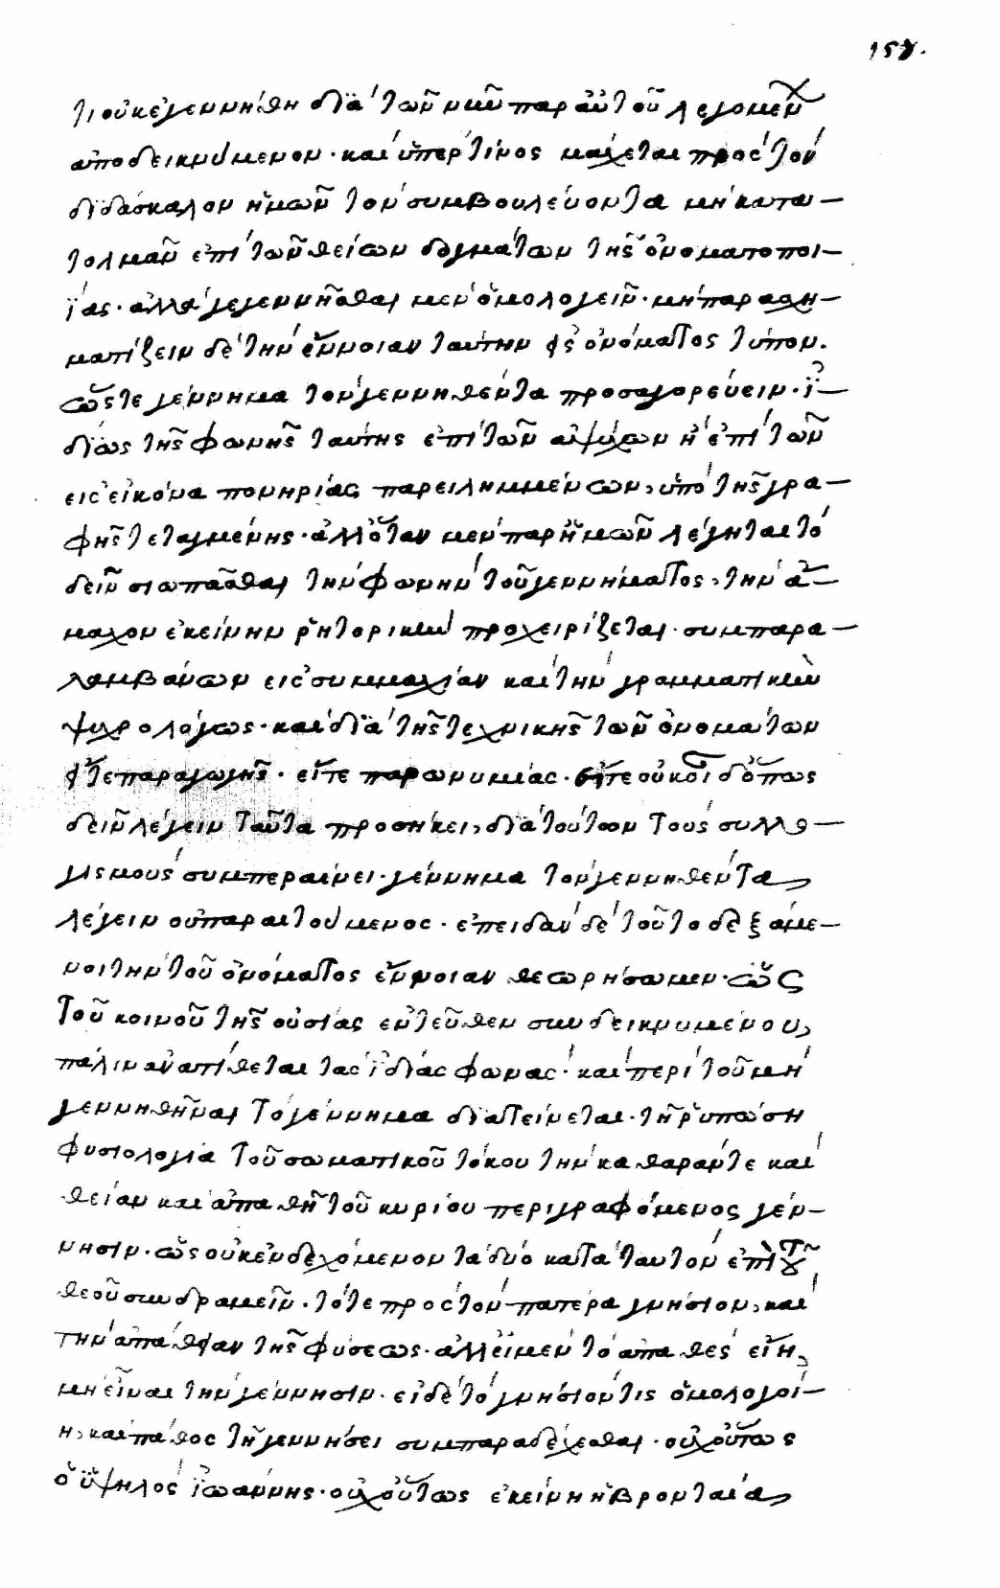 157.
τι οὐκ ἐγεννήθη διὰ τῶν νῦν παρ' αὐτοῦ λεγομένων
ἀποδεικνύμενον· καὶ ὑπέρ τινος μάχεται πρὸς τὸν
διδάσκαλον ἡμῶν τὸν συμβουλεύοντα μὴ κατα-
τολμᾶν ἐπὶ τῶν θείων δογμάτων τῆς ὀνοματοποι-
ΐας· ἀλλὰ γεγεννῆσθαι μὲν ὁμολογεῖν· μὴ παρασχη-
ματίζειν δὲ τὴν ἔννοιαν ταύτην εἰς ὀνόματος τύπον.
ὥστε γέννημα τὸν γεννηθέντα προσαγορεύειν· ἰ-
δίως τῆς φωνῆς ταύτης ἐπὶ τῶν ἀψύχων ἢ ἐπὶ τῶν
εἰς εἰκόνα πονηρίας παρειλημμένων, ὑπὸ τῆς γρα-
φῆς τεταγμένης· ἀλλ' ὅταν μὲν παρ' ἡμῶν λέγηται τὸ
δεῖν σιωπᾶσθαι τὴν φωνὴν τοῦ γεννήματος, τὴν ἄ-
μαχον ἐκείνην ῥητορικὴν προχειρίζεται· συμπαρα-
λαμβάνων εἰς συμμαχίαν καὶ τὴν γραμματικὴν
ψυχρολόγως· καὶ διὰ τῆς τεχνικῆς τῶν ὀνομάτων
εἴτε παραγωγῆς· εἴτε παρωνυμίας· εἴτε οὐκ οἶδ' ὅπως
δεῖν λέγειν ταῦτα προσήκει, διὰ τούτων τοὺς συλλο-
γισμοὺς συμπεραίνει· γέννημα τὸν γεννηθέντα
λέγειν οὐ παραιτούμενος· ἐπειδὰν δὲ τοῦτο δεξάμε-
νοι τὴν τοῦ ὀνόματος ἔννοιαν θεωρήσωμεν· ὡς
τοῦ κοινοῦ τῆς οὐσίας ἐντεῦθεν συνδεικνυμένου,
πάλιν ἀνατίθεται τὰς ἰδίας φωνάς· καὶ περὶ τοῦ μὴ
γεννηθῆναι τὸ γέννημα διατείνεται· τῇ ῥυπώσῃ
φυσιολογίᾳ τοῦ σωματικοῦ τόκου τὴν καθαράν τε καὶ
θείαν καὶ ἀπαθῆ τοῦ κυρίου περιγραφόμενος γέν-
νησιν· ὡς οὐκ ἐνδεχόμενον τὰ δύο κατὰ ταυτὸν ἐπὶ τοῦ
θεοῦ συνδραμεῖν· τό τε πρὸς τὸν πατέρα γνήσιον, καὶ
τὴν ἀπάθειαν τῆς φύσεως· ἀλλ' εἰ μὲν τὸ ἀπαθὲς εἴη,
μὴ εἶναι τὴν γέννησιν· εἰ δὲ τὸ γνήσιόν τις ὁμολογοί-
η, καὶ πάθος τῇ γεννήσει συμπαραδέχεσθαι· οὐχ οὕτως
ὁ ὑψηλὸς ἰωάννης· οὐχ οὕτως ἐκείνη ἡ βρονταία